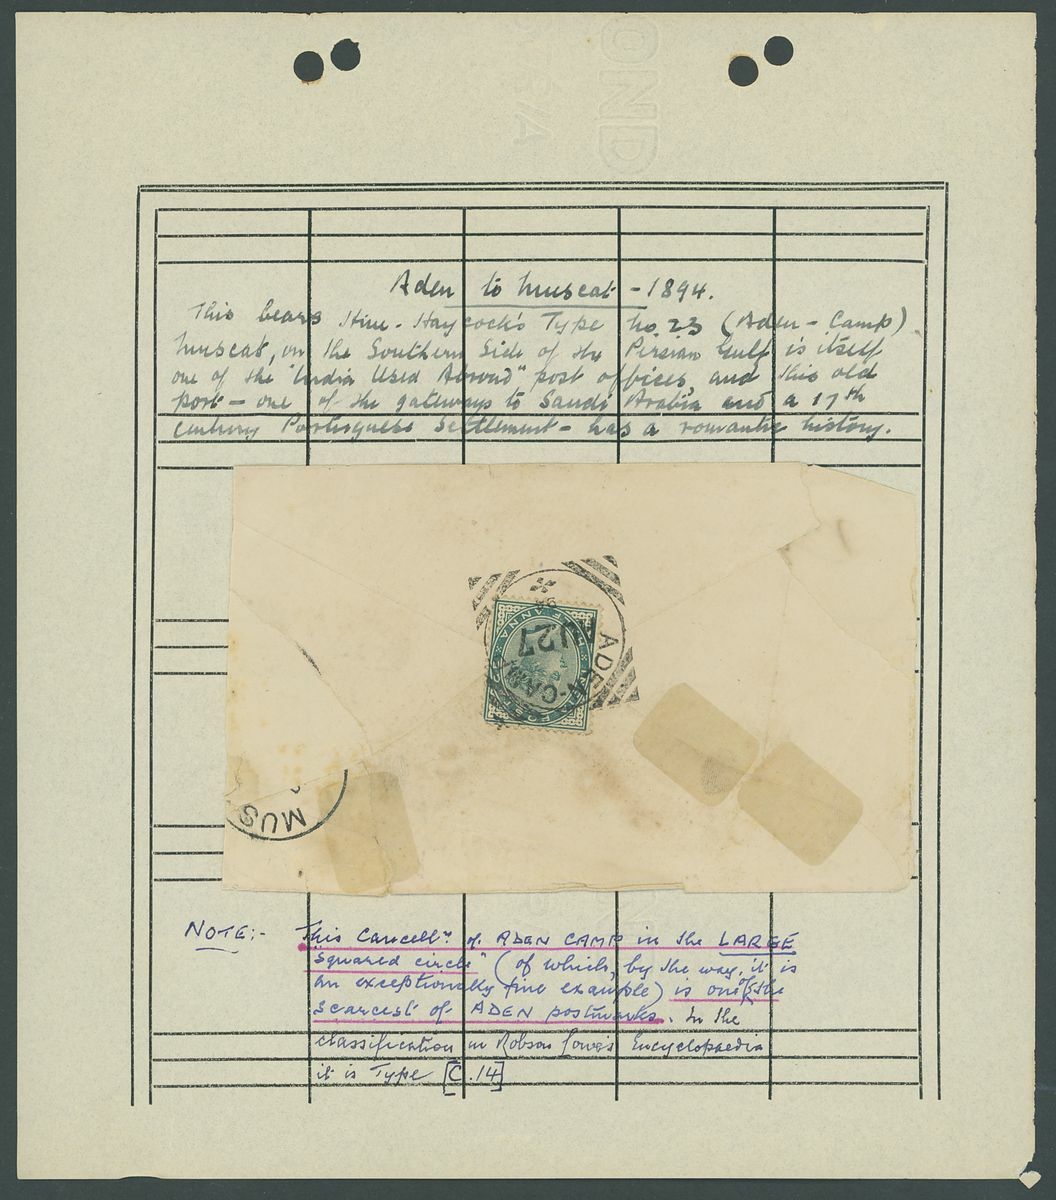 Aden to Muscat - 1894.
This bears Hiu-Haycock's Type No. 23 (Aden - Camp)
Muscat, on the Southern Side of the Persian Gulf is itself
one of the "India Used Abroad" post offices, and this old
port - one of the gateways to Saudi Arabia and a 17th
century Portuguese Settlement - has a romantic history.
ADEN-CAMP
JU27
94
HALF ANNA
MUS
NOTE:- This Cancelln of ADEN CAMP in the LARGE
Squared circle" (of which, by the way, it is
an exceptionally fine example) is one of the
scarcest of ADEN postmarks. In the
classification in Robson Lowe's Encyclopaedia
it is Type [C.14]